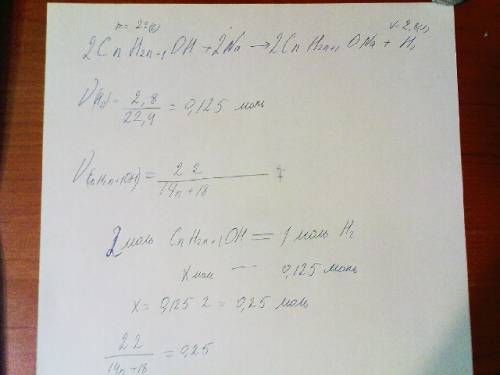 m = 22(г) V = 2,8(л)
2CnH2n+1OH + 2Na → 2CnH2n+1ONa + H2
ν(H2) = 2,8 / 22,4 = 0,125 моль
ν(CnH2n+1OH) = 22 / 14n+18
2 моль CnH2n+1OH = 1 моль H2
x моль — 0,125 моль
x = 0,125 2 = 0,25 моль
22 / 14n+18 = 0,25